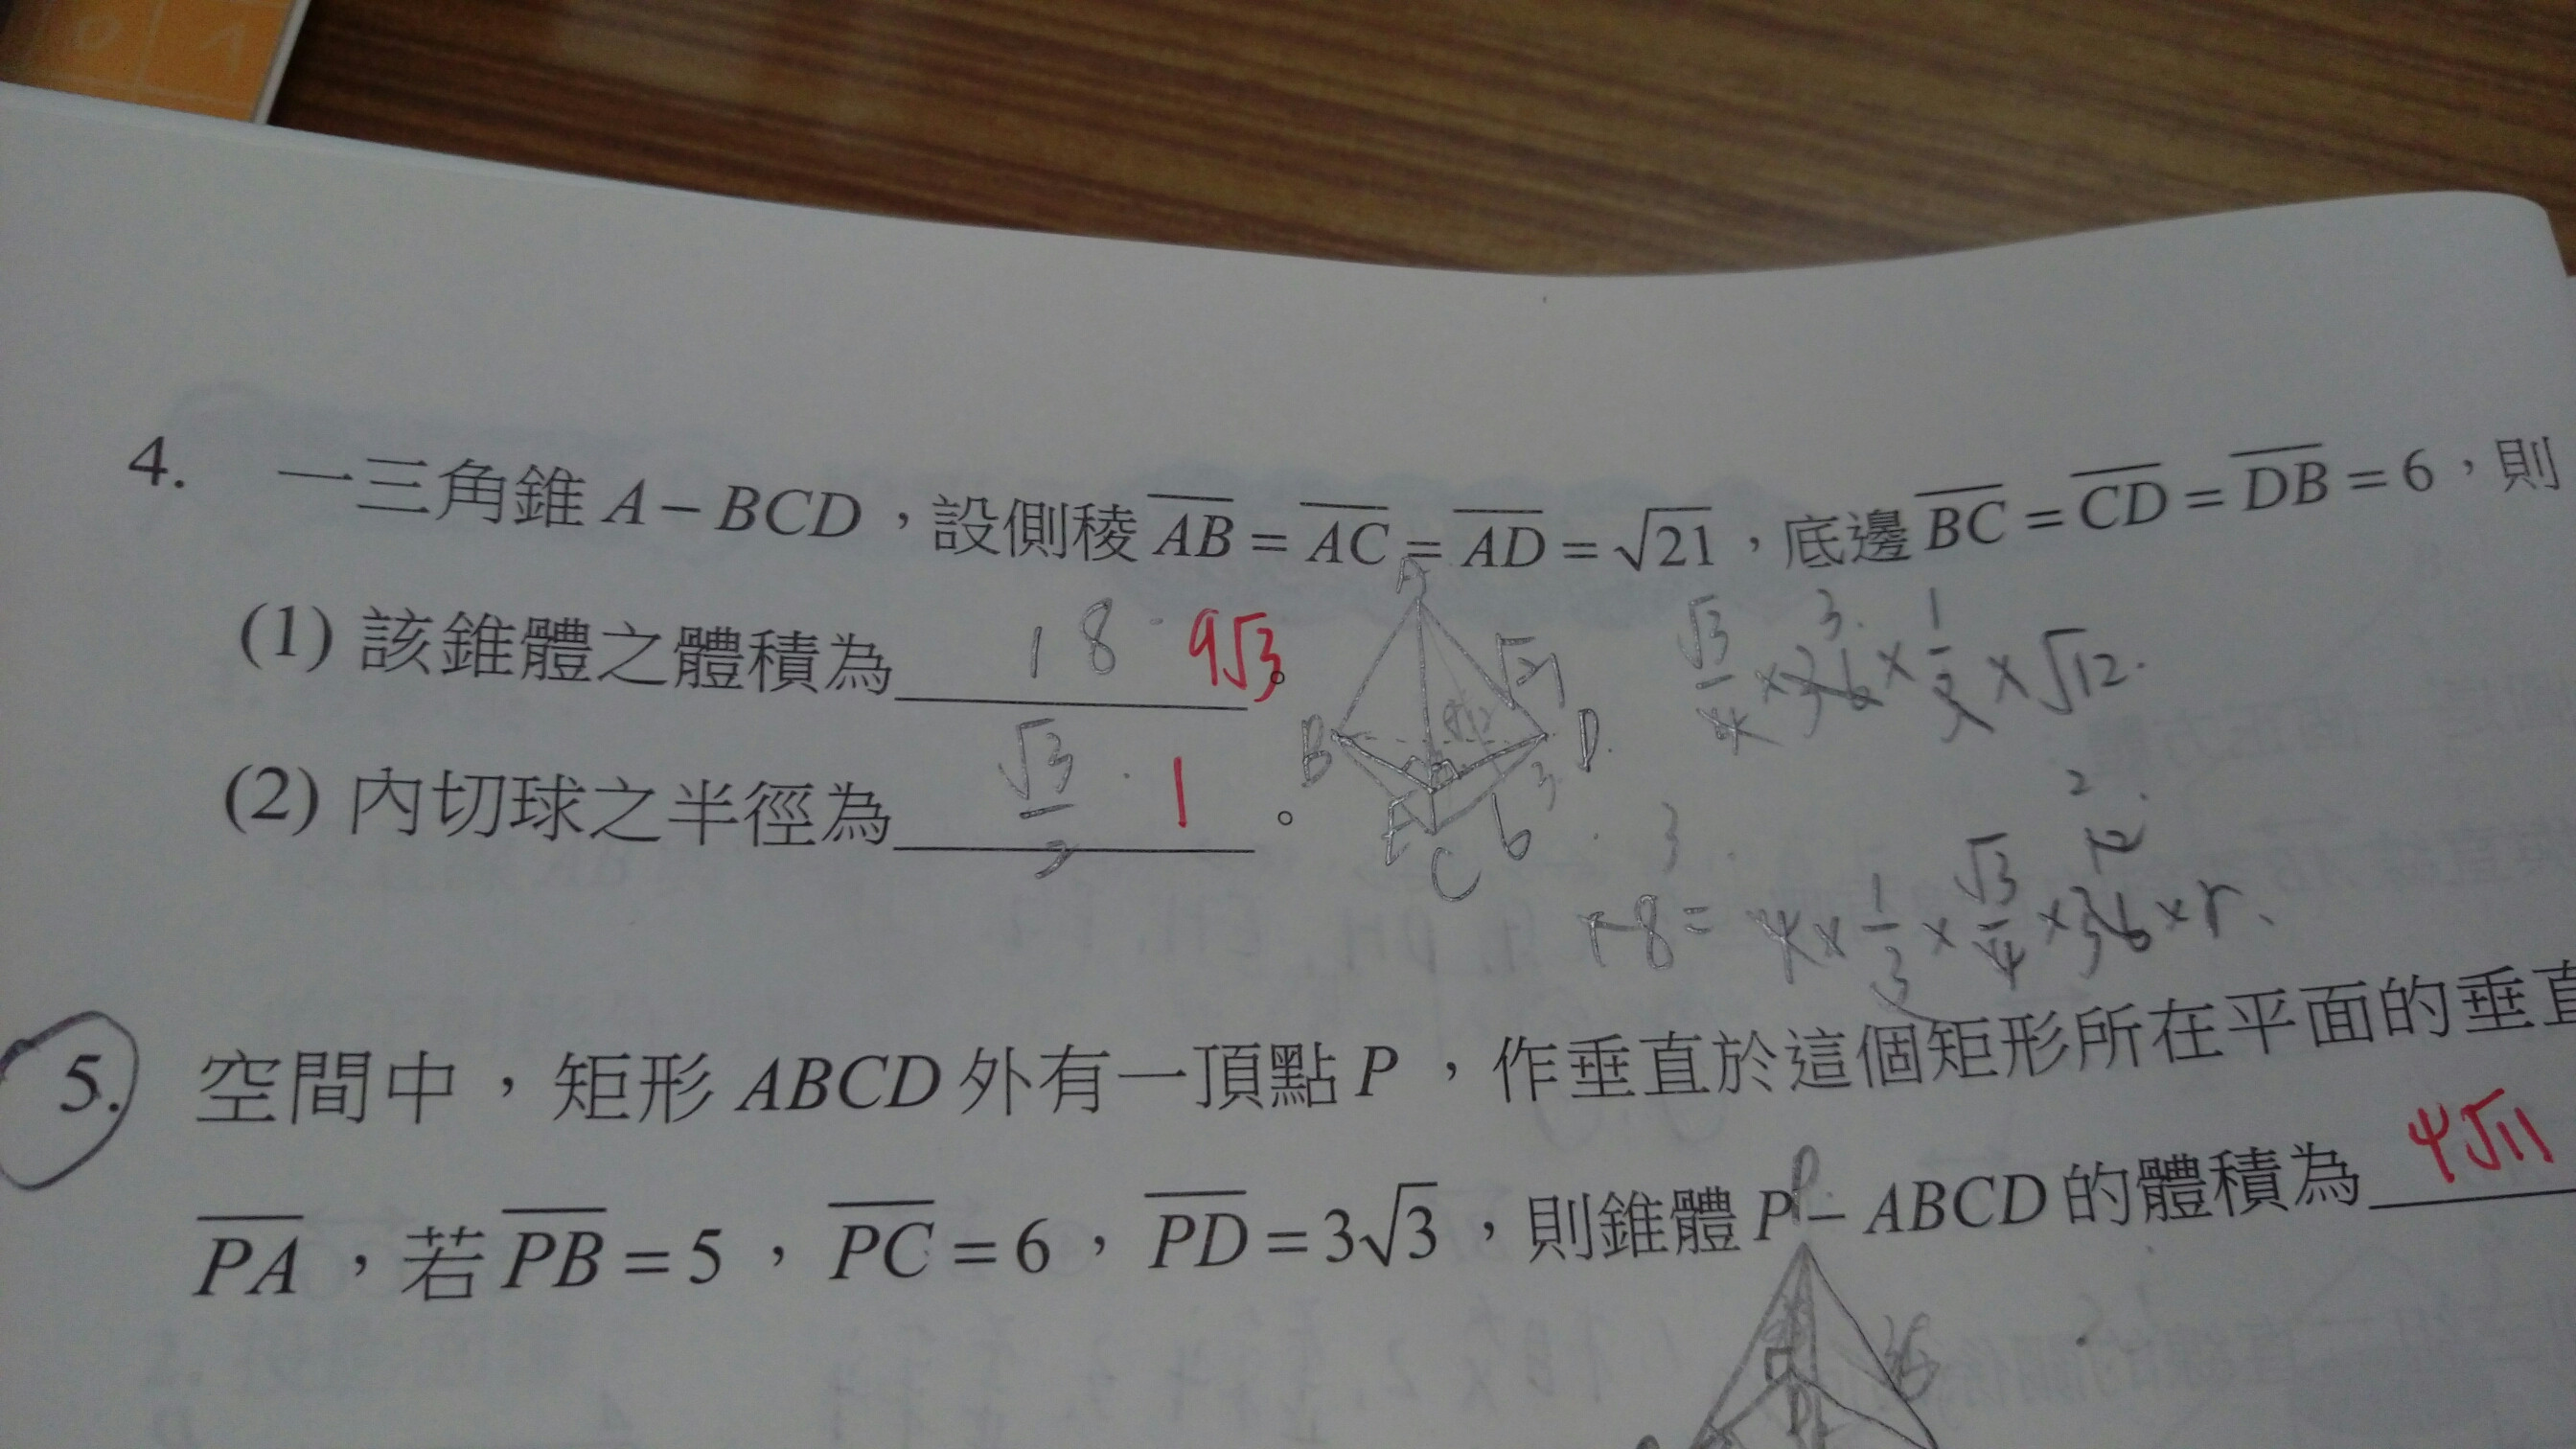 0 1
4. 一三角錐 A－BCD，設側稜 AB = AC = AD = √21，底邊 BC = CD = DB = 6，則
(1) 該錐體之體積為 18 9√3。
(2) 內切球之半徑為 √3/2 1。
A
B
D
E
C
√21
√12
3
6
√3/4 × 36 3 × 1/3 × √12
18 3 = 4 × 1/3 × √3/4 × 36 12 2 × r
5. 空間中，矩形 ABCD 外有一頂點 P，作垂直於這個矩形所在平面的垂直
PA，若 PB = 5，PC = 6，PD = 3√3，則錐體 P－ABCD 的體積為 4√11
P